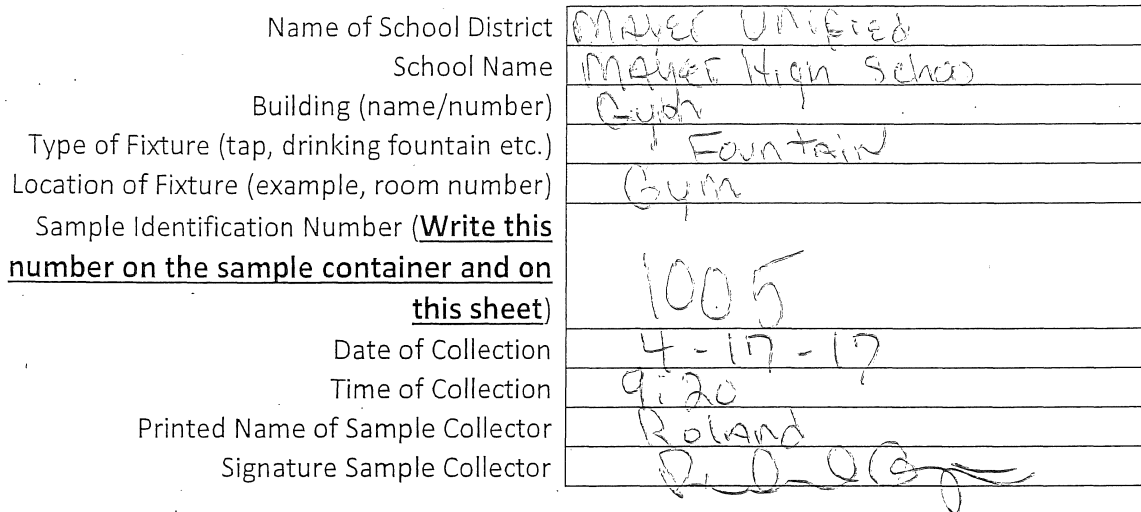 Name of School District Mayer Unified
School Name Mayer High School
Building (name/number) Gym
Type of Fixture (tap, drinking fountain etc.) Fountain
Location of Fixture (example, room number) Gym
Sample Identification Number (Write this
number on the sample container and on
this sheet) 1005
Date of Collection 4-17-17
Time of Collection 9:20
Printed Name of Sample Collector Roland
Signature Sample Collector